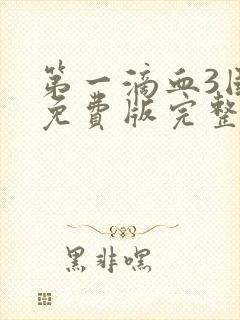 第一滴血3
免费版完整
黑非嘿